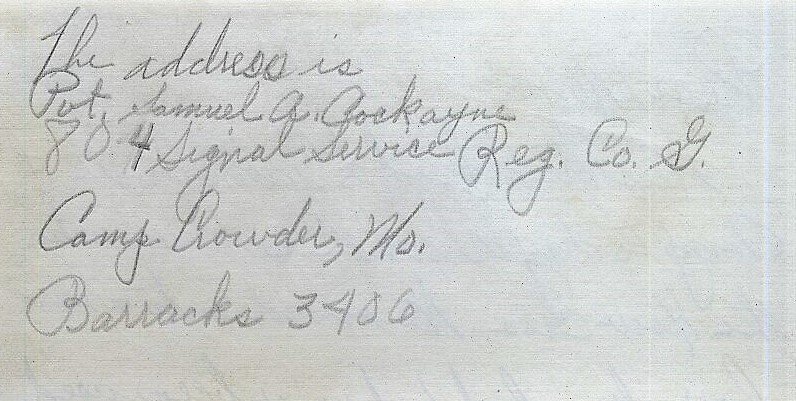 The address is
Pvt. Samuel A. Cockayne
804 Signal Service Reg. Co. G.
Camp Crowder, Mo.
Barracks 3406